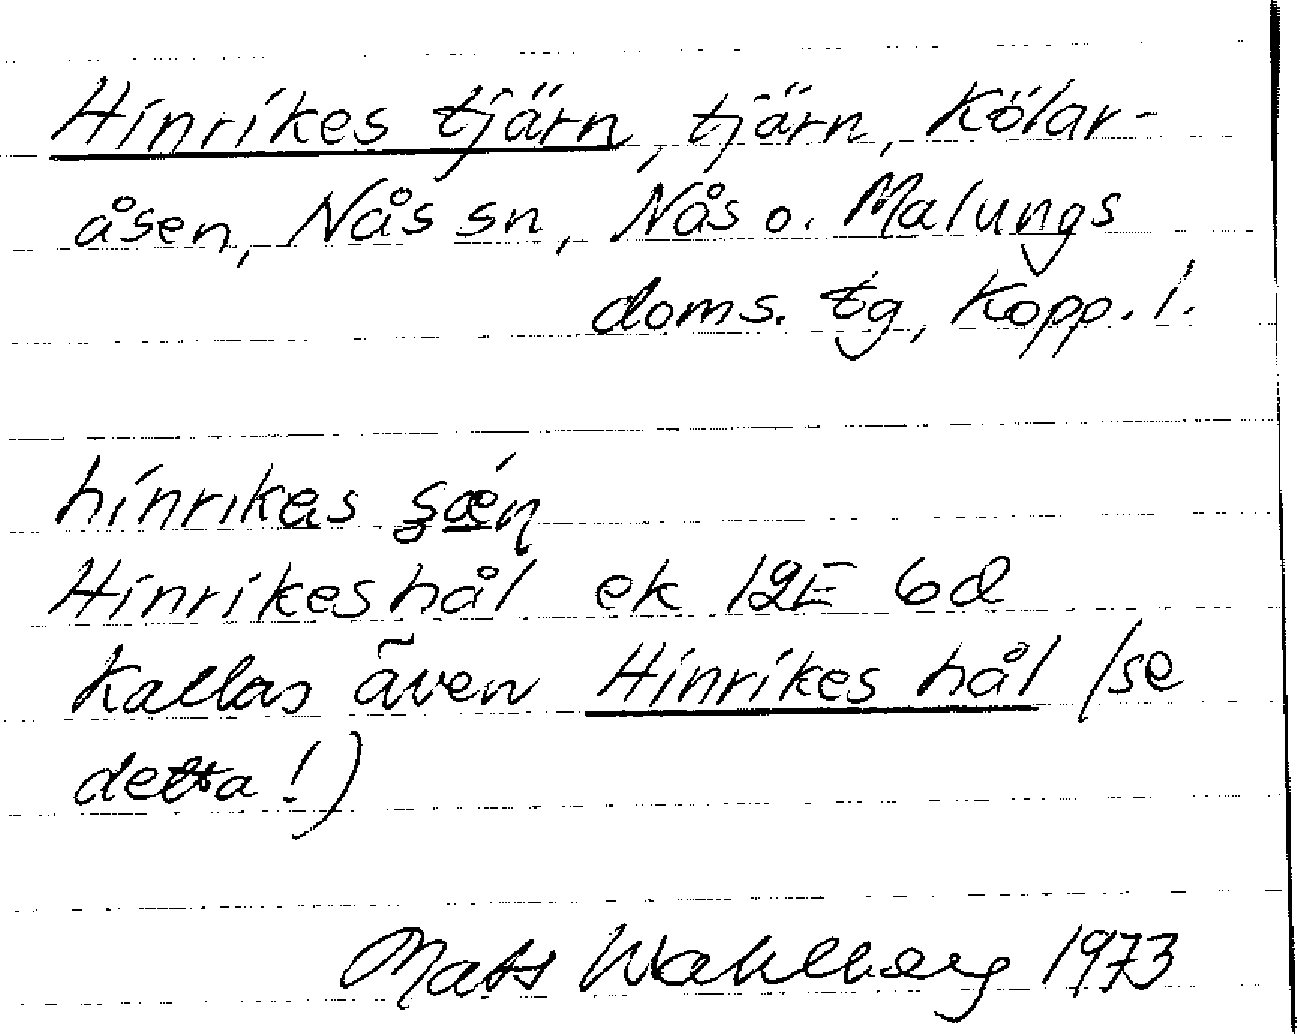 Hinrikes tjärn, tjärn, Kölar-
åsen, Nås sn, Nås o. Malungs
doms. tg, Kopp. l.
hinrikes
Hinrikeshål ek 12E 6d
kallas även Hinrikes hål (se
detta!)
Mats Wahlberg 1973